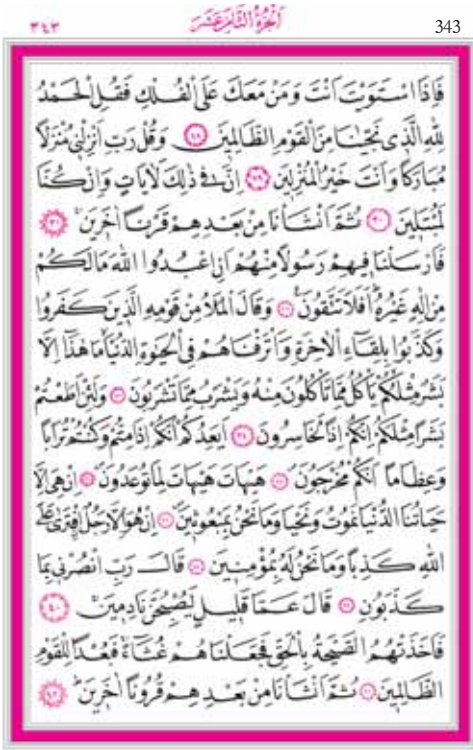 ٣٤٣ اَلْجُزْءُ الثَّامِنَ عَشَرَ 343
فَاِذَا اسْتَوَيْتَ اَنْتَ وَمَنْ مَعَكَ عَلَى الْفُلْكِ فَقُلِ الْحَمْدُ
لِلّٰهِ الَّذ۪ي نَجّٰينَا مِنَ الْقَوْمِ الظَّالِم۪ينَ ﴿٢٨﴾ وَقُلْ رَبِّ اَنْزِلْن۪ي مُنْزَلًا
مُبَارَكًا وَاَنْتَ خَيْرُ الْمُنْزِل۪ينَ ﴿٢٩﴾ اِنَّ ف۪ي ذٰلِكَ لَاٰيَاتٍ وَاِنْ كُنَّا
لَمُبْتَل۪ينَ ﴿٣٠﴾ ثُمَّ اَنْشَأْنَا مِنْ بَعْدِهِمْ قَرْنًا اٰخَر۪ينَ ﴿٣١﴾
فَاَرْسَلْنَا ف۪يهِمْ رَسُولًا مِنْهُمْ اَنِ اعْبُدُوا اللّٰهَ مَا لَكُمْ
مِنْ اِلٰهٍ غَيْرُهُ اَفَلَا تَتَّقُونَ ﴿٣٢﴾ وَقَالَ الْمَلَاُ مِنْ قَوْمِهِ الَّذ۪ينَ كَفَرُوا
وَكَذَّبُوا بِلِقَاءِ الْاٰخِرَةِ وَاَتْرَفْنَاهُمْ فِي الْحَيٰوةِ الدُّنْيَا مَا هٰذَا اِلَّا
بَشَرٌ مِثْلُكُمْ يَأْكُلُ مِمَّا تَأْكُلُونَ مِنْهُ وَيَشْرَبُ مِمَّا تَشْرَبُونَ ﴿٣٣﴾ وَلَئِنْ اَطَعْتُمْ
بَشَرًا مِثْلَكُمْ اِنَّكُمْ اِذًا لَخَاسِرُونَ ﴿٣٤﴾ اَيَعِدُكُمْ اَنَّكُمْ اِذَا مِتُّمْ وَكُنْتُمْ تُرَابًا
وَعِظَامًا اَنَّكُمْ مُخْرَجُونَ ﴿٣٥﴾ هَيْهَاتَ هَيْهَاتَ لِمَا تُوعَدُونَ ﴿٣٦﴾ اِنْ هِيَ اِلَّا
حَيَاتُنَا الدُّنْيَا نَمُوتُ وَنَحْيَا وَمَا نَحْنُ بِمَبْعُوث۪ينَ ﴿٣٧﴾ اِنْ هُوَ اِلَّا رَجُلٌ افْتَرٰى عَلَى
اللّٰهِ كَذِبًا وَمَا نَحْنُ لَهُ بِمُؤْمِن۪ينَ ﴿٣٨﴾ قَالَ رَبِّ انْصُرْن۪ي بِمَا
كَذَّبُونِ ﴿٣٩﴾ قَالَ عَمَّا قَل۪يلٍ لَيُصْبِحُنَّ نَادِم۪ينَ ﴿٤٠﴾
فَاَخَذَتْهُمُ الصَّيْحَةُ بِالْحَقِّ فَجَعَلْنَاهُمْ غُثَاءً فَبُعْدًا لِلْقَوْمِ
الظَّالِم۪ينَ ﴿٤١﴾ ثُمَّ اَنْشَأْنَا مِنْ بَعْدِهِمْ قُرُونًا اٰخَر۪ينَ ﴿٤٢﴾